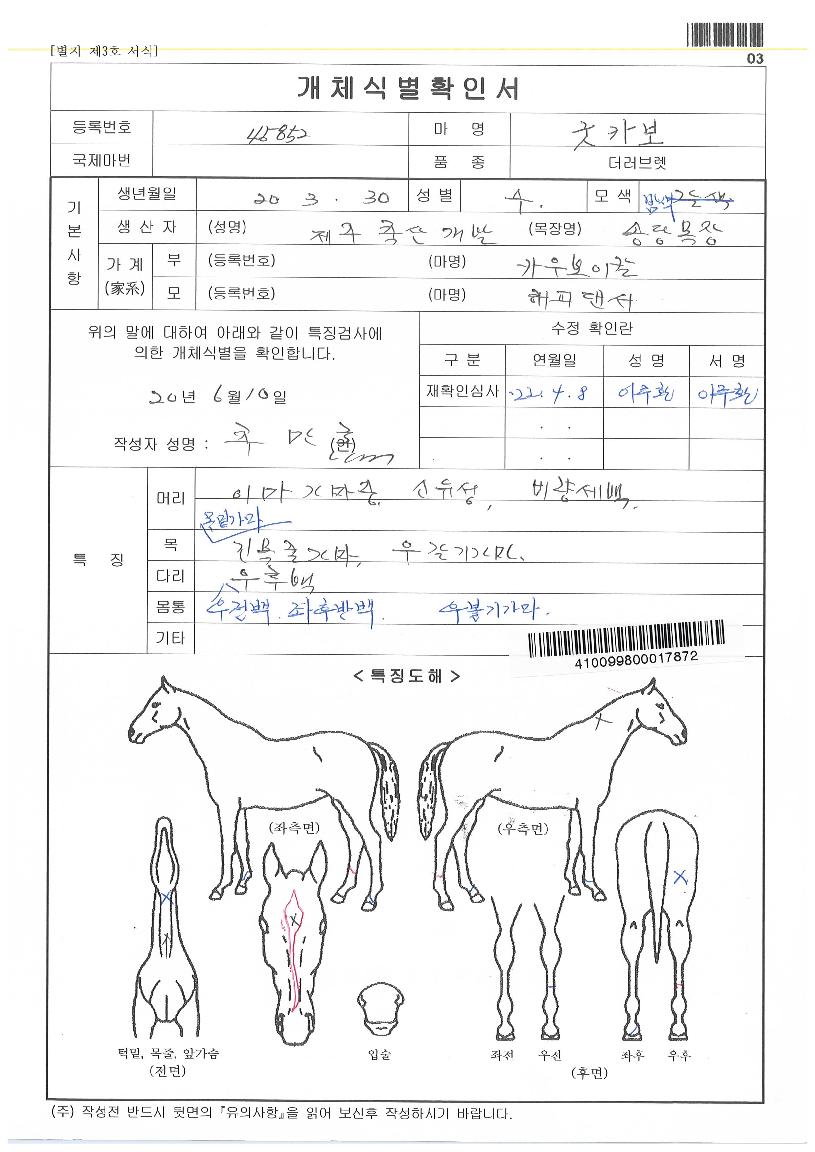 [별지 제3호 서식]
03
개체식별확인서
등록번호 45852 마 명 굿카보
국제마번 품 종 더러브렛
기본사항
생년월일 20 3 . 30 성별 수. 모색 밤색
생 산 자 (성명) 제주축산개발 (목장명) 송당목장
가계(家系) 부 (등록번호) (마명) 카우보이칼
모 (등록번호) (마명) 해피댄서
위의 말에 대하여 아래와 같이 특징검사에
의한 개체식별을 확인합니다.
20년 6월 10일
작성자 성명 :
(인)
수정 확인란
구 분 연월일 성 명 서 명
재확인심사 '22. 4. 8 이주환 이주환
. .
. .
특 징
머리 이마가마중, 신유성, 비량세백.
목밑가마
목
다리 우후백
몸통 우전백. 좌후반백. 우볼기가마.
기타
410099800017872
< 특징도해 >
(좌측면) (우측면)
턱밑, 목줄, 앞가슴
(전면)
입술
좌전 우전 좌후 우후
(후면)
(주) 작성전 반드시 뒷면의 『유의사항』을 읽어 보신후 작성하시기 바랍니다.